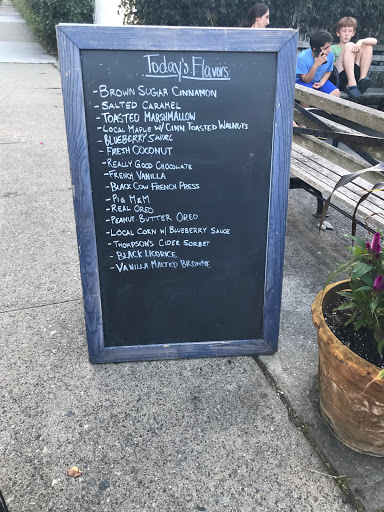 Today's Flavors
- Brown Sugar Cinnamon
- Salted Caramel
- Toasted Marshmallow
- Local Maple w/ Cinn. Toasted Walnuts
- Blueberry Swirl
- Fresh Coconut
- Really Good Chocolate
- French Vanilla
- Black Cow French Press
- Pig M&M
- Real Oreo
- Peanut Butter Oreo
- Local Corn w/ Blueberry Sauce
- Thompson's Cider Sorbet
- Black Licorice
- Vanilla Malted Browne